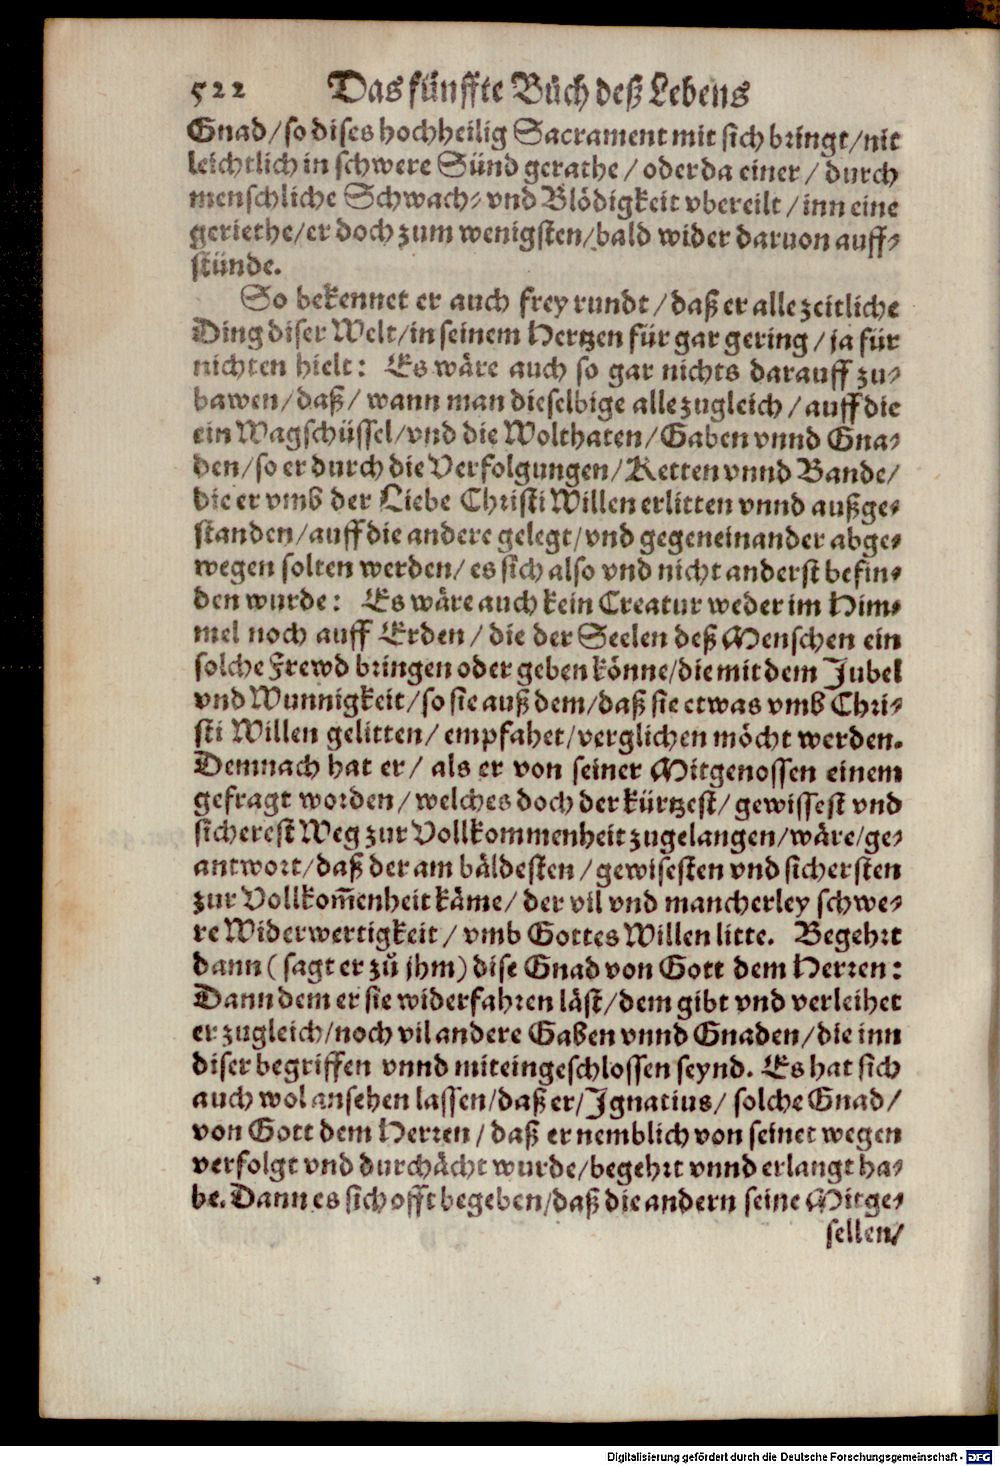 522 Das fünffte Bůch deß Lebens
Gnad/so dises hochheilig Sacrament mit sich bringt/nit
leichtlich in schwere Sünd gerathe/oder da einer/durch
menschliche Schwach- vnd Blödigkeit vbereilt/inn eine
geriethe/er doch zum wenigsten/bald wider daruon auff-
stünde.
So bekennet er auch frey rundt/daß er alle zeitliche
Ding diser Welt/in seinem Hertzen für gar gering/ja für
nichten hielt: Es wäre auch so gar nichts darauff zu-
bawen/daß/wann man dieselbige alle zugleich/auff die
ein Wagschüssel/vnd die Wolthaten/Gaben vnnd Gna-
den/so er durch die Verfolgungen/Ketten vnnd Bande/
die er vmb der Liebe Christi Willen erlitten vnnd außge-
standen/auff die andere gelegt/vnd gegeneinander abge-
wegen solten werden/es sich also vnd nicht anderst befin-
den wurde: Es wäre auch kein Creatur weder im Him-
mel noch auff Erden/die der Seelen deß Menschen ein
solche Frewd bringen oder geben könne/die mit dem Jubel
vnd Wunnigkeit/so sie auß dem/daß sie etwas vmb Chri-
sti Willen gelitten/empfahet/verglichen möcht werden.
Demnach hat er/als er von seiner Mitgenossen einem
gefragt worden/welches doch der kürtzest/gewissest vnd
sicherest Weg zur Vollkommenheit zugelangen/wäre/ge-
antwort/daß der am bäldesten/gewisesten vnd sichersten
zur Vollkom̃enheit käme/der vil vnd mancherley schwe-
re Widerwertigkeit/vmb Gottes Willen litte. Begehrt
dann (sagt er zů jhm) dise Gnad von Gott dem Herren:
Dann dem er sie widerfahren läst/dem gibt vnd verleihet
er zugleich/noch vil andere Gaben vnnd Gnaden/die inn
diser begriffen vnnd miteingeschlossen seynd. Es hat sich
auch wol ansehen lassen/daß er/Ignatius/solche Gnad/
von Gott dem Herren/daß er nemblich von seinet wegen
verfolgt vnd durchächt wurde/begehrt vnnd erlangt ha-
be. Dann es sich offt begeben/daß die andern seine Mitge-
sellen/
Digitalisierung gefördert durch die Deutsche Forschungsgemeinschaft - DFG